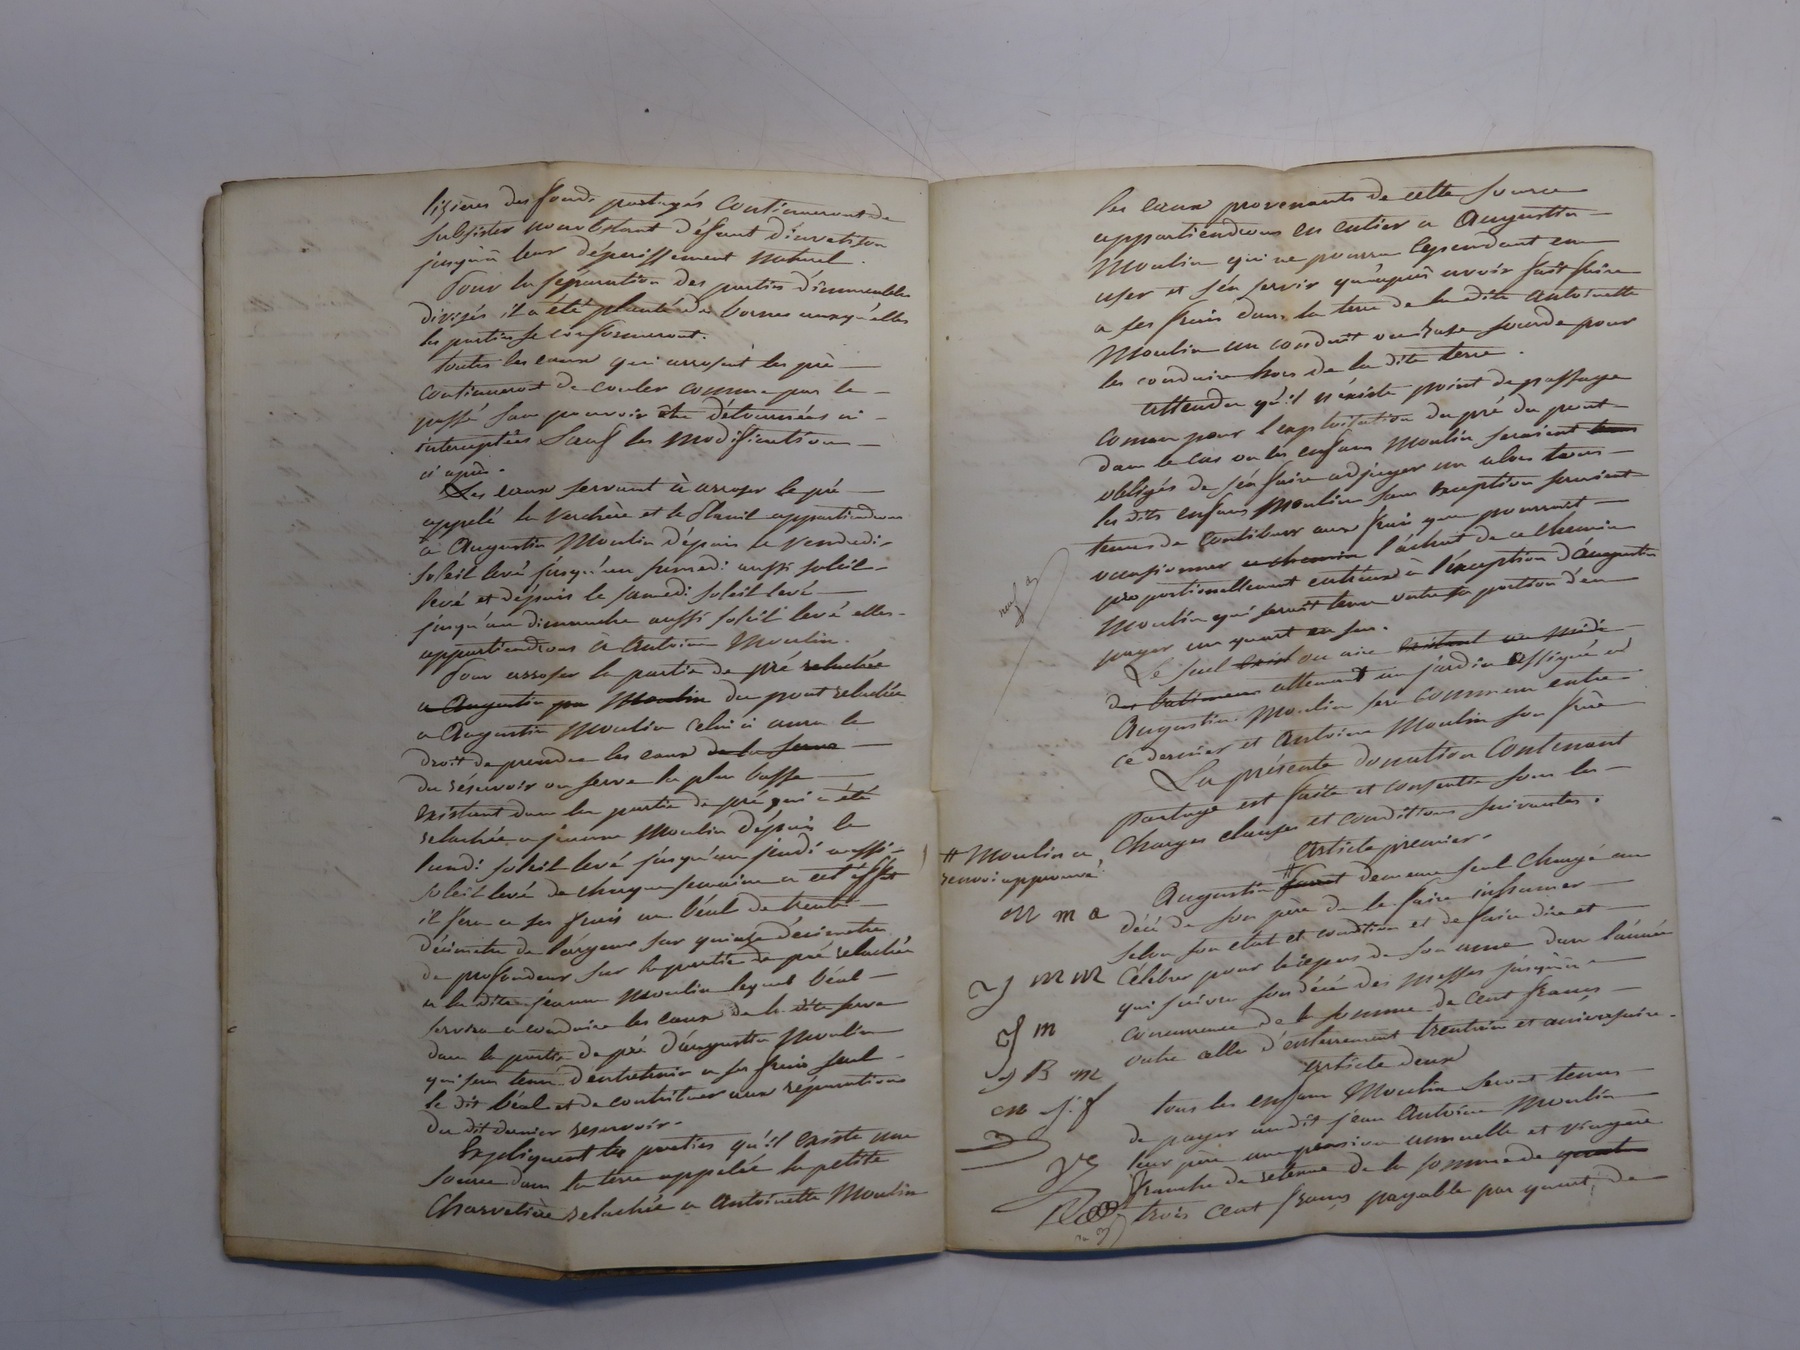 lizières des fonds partagés continueront de
subsister nonobstant défaut d'invetison
jusqu'à leur dépérissement naturel.
Pour la séparation des parties d'immeubles
divisés il a été planté des bornes auxquelles
les parties se conformeront.
toutes les eaux qui arrosent les prés
continueront de couler comme par le
passé sans pouvoir être détournées ni
interceptées sauf les modifications
ci après.
Les eaux servant à arroser le pré
appelé la Verchère et le Planil appartiendrons
à Augustin Moulin dépuis le Vendredi
soleil levé jusqu'au samedi aussi soleil
levé et dépuis le samedi soleil levé
jusqu'au dimanche aussi soleil levé elles
appartiendrons à Antoine Moulin.
Pour arroser la partie de pré relachée
a Augustin Moulin du pont relachée
a Augustin Moulin celui ci aura le
droit de prendre les eaux de la serve
du réservoir ou serve la plus basse
existant dans la partie de pré qui a été
relachée a jeanne Moulin dépuis le
lundi soleil levé jusqu'au jeudi aussi
soleil levé de chaque semaine a cet éffet
il fera a ses frais un béal de trente
décimetre de largeur sur quinze décimetre
de profondeur sur la partie de pré relachée
a la dite jeanne Moulin lequel béal
servira a conduire les eaux de la dite serve
dans la partie de pré d'augustin Moulin
qui sera tenu d'entretenir a ses frais seul
le dit béal et de contribuer aux réparations
du dit dernier reservoir.
Expliquent les parties qu'il existe une
source dans la terre appelée la petite
Charvetière relachée a Antoinette Moulin
les eaux provenants de cette source
appartiendrons en entier a Augustin
Moulin qui ne pourra cependant en
user et s'en servir qu'après avoir fait faire
a ses frais dans la terre de la dite Antoinette
Moulin un conduit ou rase sourde pour
les conduire hors de la dite terre.
attendu qu'il n'existe point de passage
comun pour l'exploitation du pré du pont
dans le cas ou les enfans Moulin seraient
obligés de s'en faire adjuger un alors tous
les dits enfans Moulin sans exception seraient
tenus de contribuer aux frais que pourrait
occasionner ce chemin l'achat de ce chemin
proportionellement entreux à l'éxception d'augustin
Moulin qui serait tenu outre sa portion d'en
payer un quart en sus.
Le seul ou aire existant au midi
des batimens attenant au jardin assigné a
Augustin Moulin sera commun entre
ce dernier et Antoine Moulin son frère
La présente donation contenant
partage est faite et consentie sous les
charges clauses et conditions suivantes.
Article premier.
# Moulin a,
renvoi approuvé
Augustin # demeure seul chargé au
décé de son père de le faire inhumer
selon son etat et condition et de faire dire et
célébrer pour le repos de son ame dans l'année
qui suivra son décé des messes jusqu'à
concurrence de la somme de cent francs
outre celle d'enterrement trentain et aniversaire.
M m a
J m M
J m
J B m
Article deux
tous les enfans Moulin seront tenus
de payer audit jean Antoine Moulin
leur père une pension annuelle et viagère
franche de retenue de la somme de
trois cent francs payable par quart, de